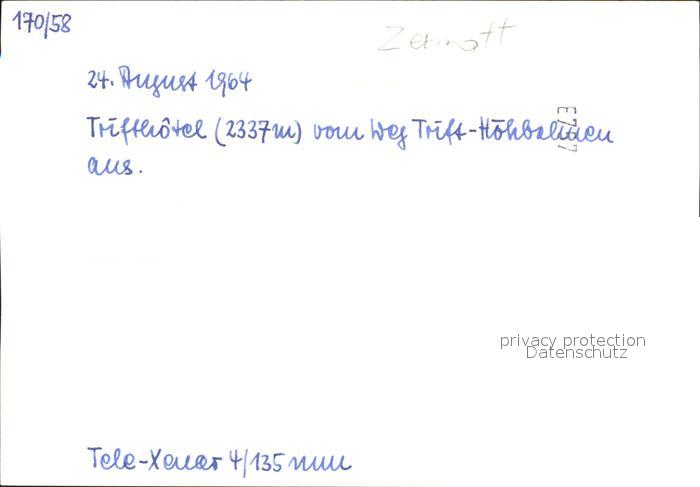 170/58
Zermatt
24. August 1964
Trifthôtel (2337m) vom Weg Trift-Höhbalmen
aus.
privacy protection
Datenschutz
Tele-Xenar 4/135 mm